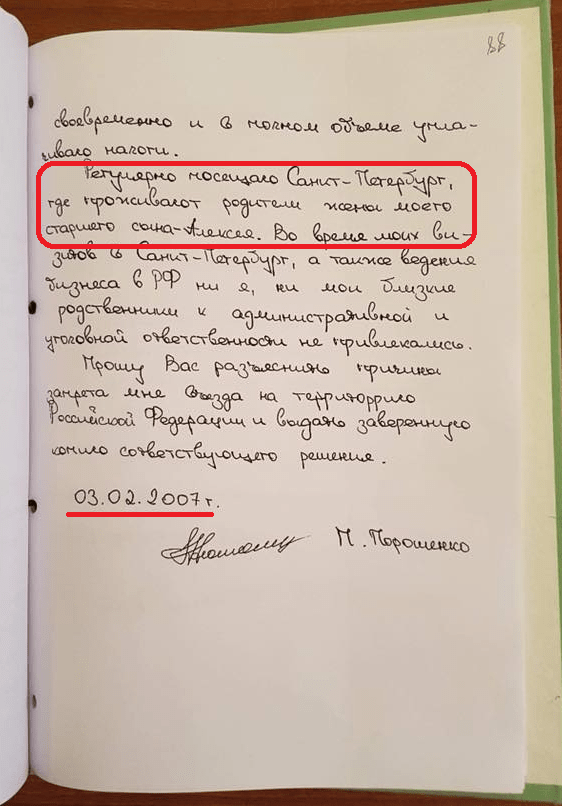 88
своевременно и в полном объеме упла-
чиваю налоги.
Регулярно посещаю Санкт-Петербург,
где проживают родители жены моего
старшего сына-Алексея. Во время моих ви-
зитов в Санкт-Петербург, а также ведения
бизнеса в РФ ни я, ни мои близкие
родственники к административной и
уголовной ответственности не привлекались.
Прошу Вас разъяснить причины
запрета мне въезда на территорию
Российской Федерации и выдать заверенную
копию соответствующего решения.
03.02.2007 г.
П. Порошенко